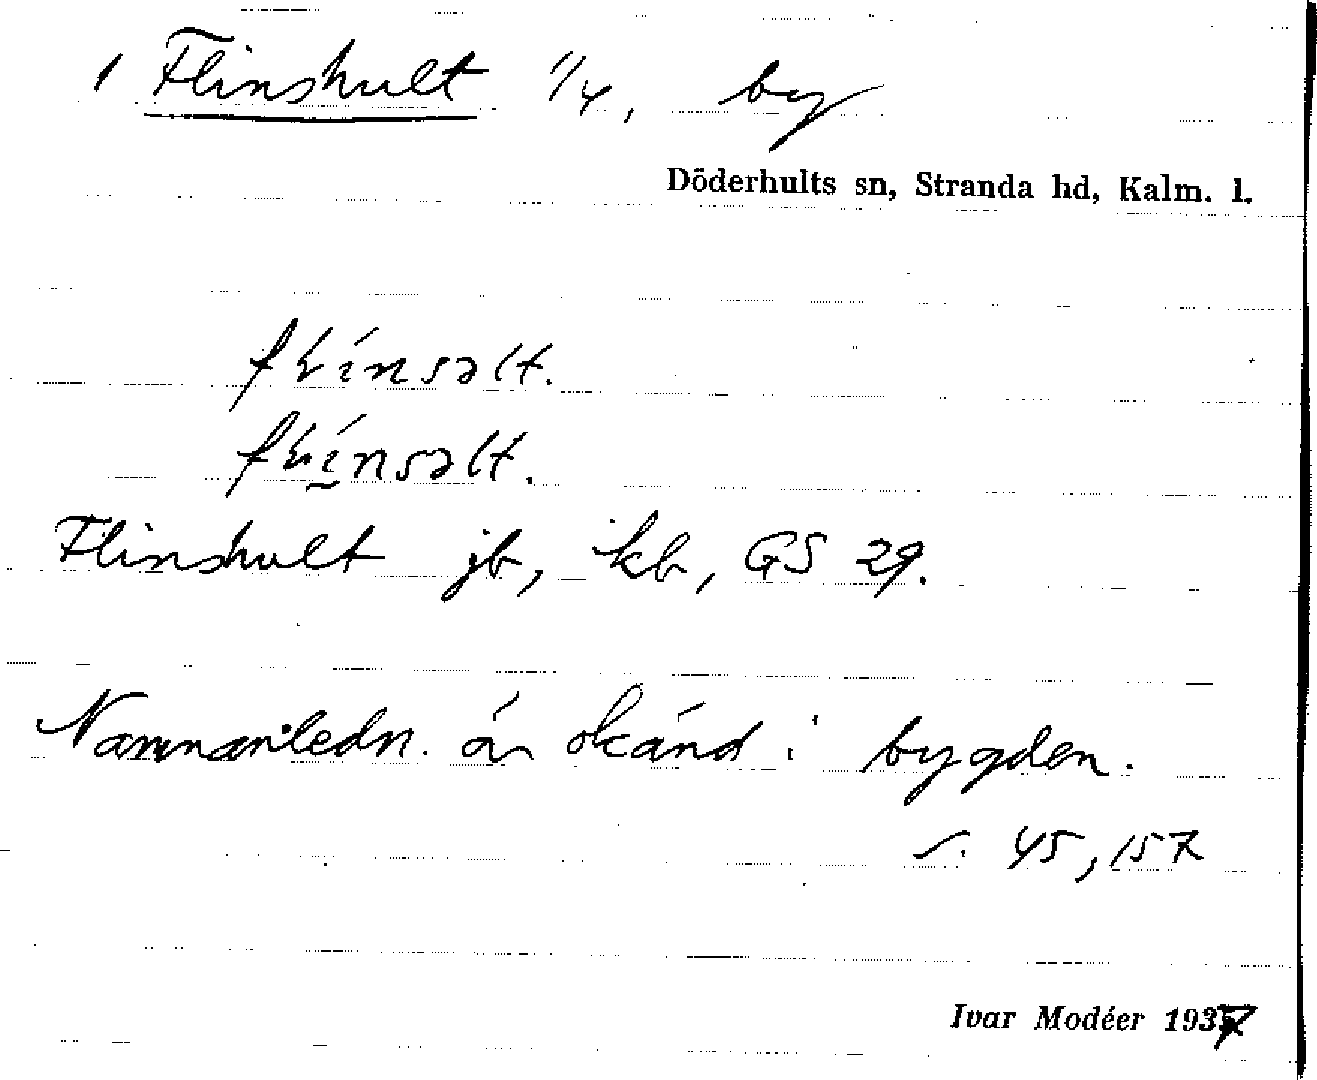 1 Flinshult 1/4, by
Döderhults sn, Stranda hd, Kalm. l.
Flinshult jb, kb, GS 29.
Namnanledn. är okänd i bygden.
s. 45, 157
Ivar Modéer 1937